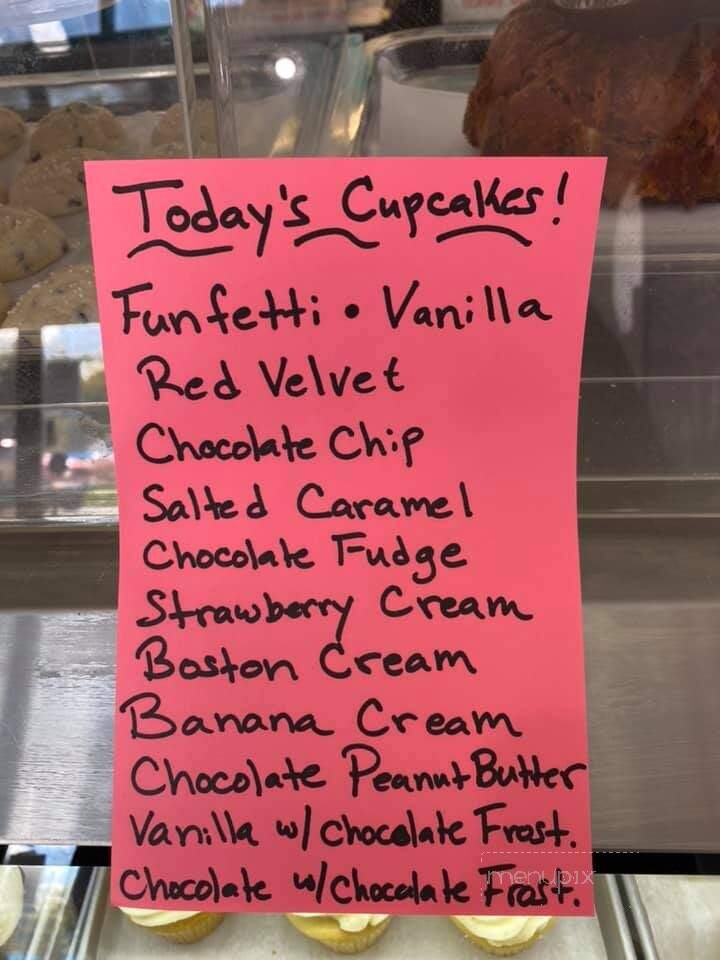 Today's Cupcakes!
Funfetti • Vanilla
Red Velvet
Chocolate Chip
Salted Caramel
Chocolate Fudge
Strawberry Cream
Boston Cream
Banana Cream
Chocolate Peanut Butter
Vanilla w/ chocolate Frost.
Chocolate w/ Chocolate Frost.
menupix